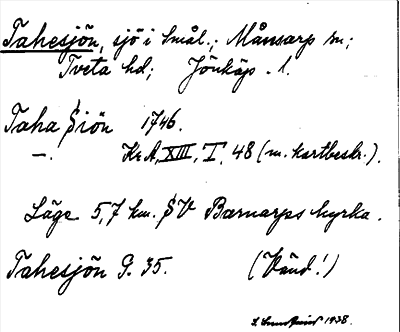 Tahesjön, sjö i Smål.; Månsarp sn;
Tveta hd; Jönköp. l.
Taha Siön 1746.
—. Kr.A, XIII, I, 48 (m. kartbeskr.).
Läge 5,7 km. SV Barnarps kyrka.
Tahesjön G. 35. (Vänd!)
1938.